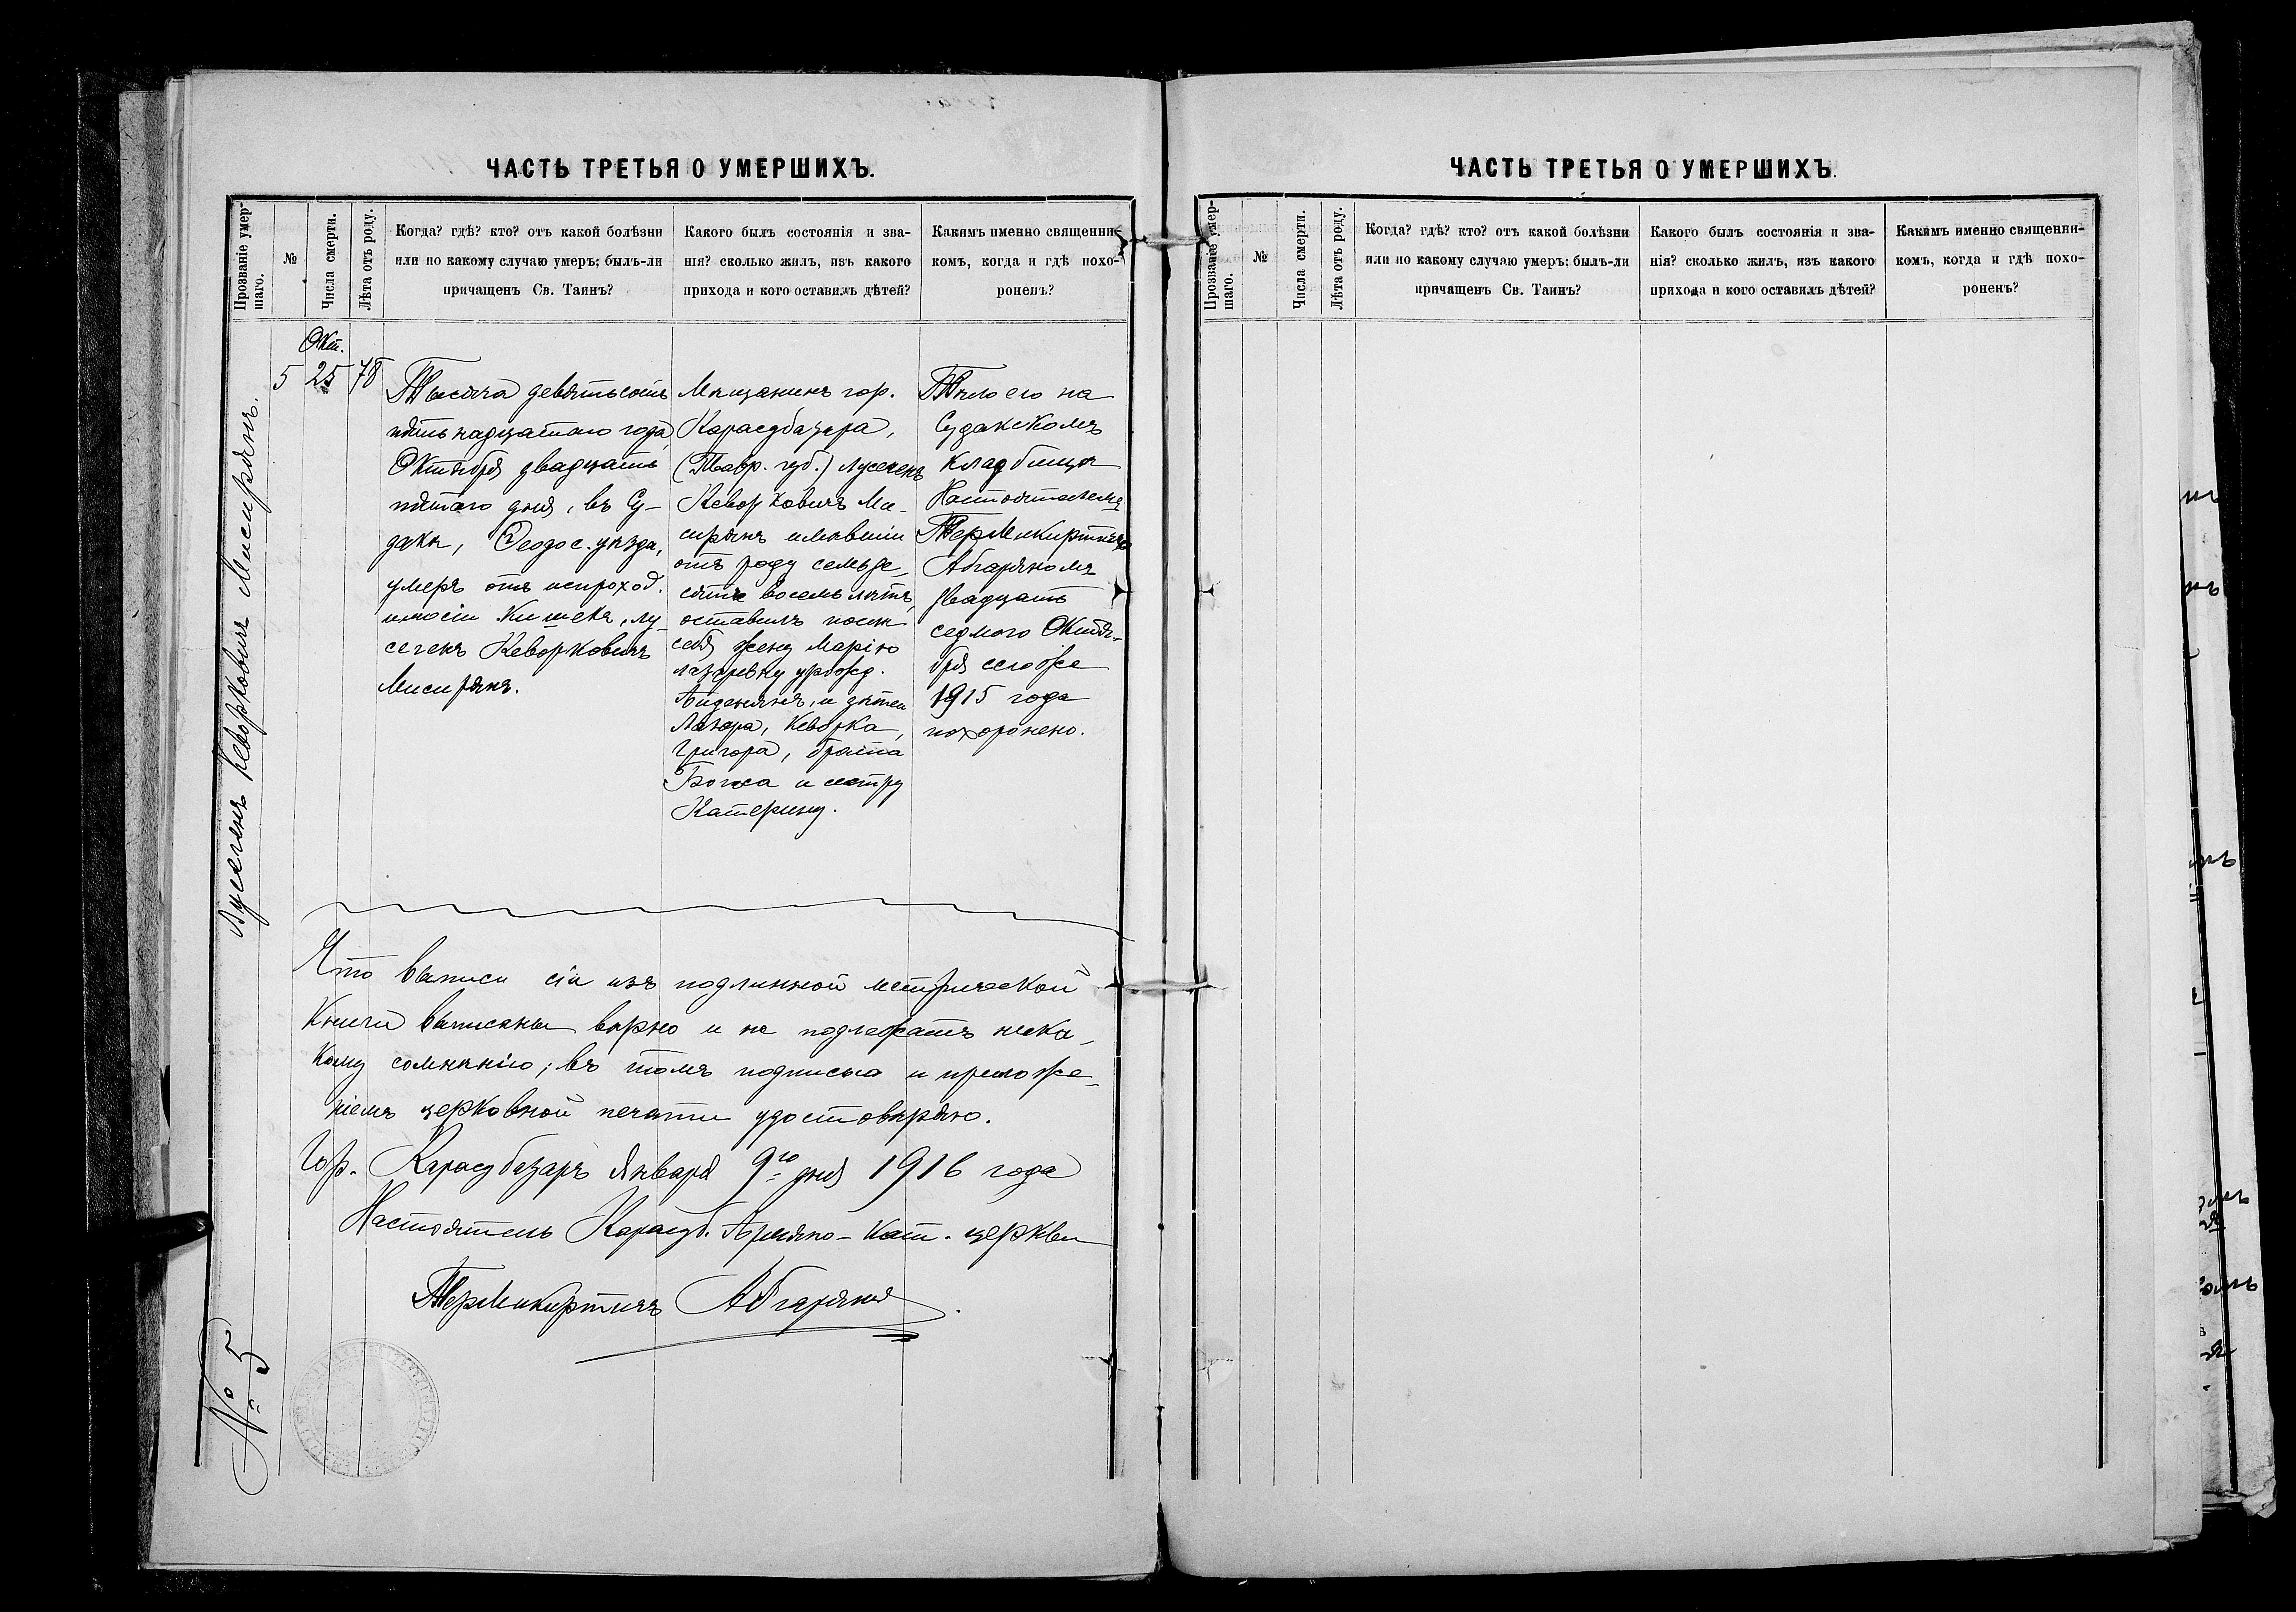 ЧАСТЬ ТРЕТЬЯ О УМЕРШИХЪ.
Прозваніе умер-
шаго.
№
Числа смерти.
Лѣта отъ роду.
Когда? гдѣ? кто? отъ какой болѣзни
или по какому случаю умеръ; былъ-ли
причащенъ Св. Таинъ?
Какого былъ состоянія и зва-
нія? сколько жилъ, изъ какого
прихода и кого оставилъ дѣтей?
Какимъ именно священни-
комъ, когда и гдѣ похо-
роненъ?
Лусегенъ Кеворковичъ Мисирянъ.
5
Окт.
25
78
Тысяча девятьсотъ
пятнадцатаго года
Октября двадцать
пятаго дня, въ Су-
дакѣ, Ѳеодос. уѣзда,
умеръ отъ непроход.
имости кишекъ, Лу-
сегенъ Кеворковичъ
Мисирянъ.
Мѣщанинъ гор.
Карасубазара,
(Тавр. губ.) Лусегенъ
Кеворковичъ Ми-
сирянъ имѣвшій
отъ роду семьде-
сятъ восемь лѣтъ,
оставилъ послѣ
себя жену Марію
Лазаревну урожд.
и дѣтей
Лазара, Кеворка,
Григора, брата
Богоса и сестру
Катерину.
Тѣло его на
Судакскомъ
кладбищѣ
Настоятелемъ
Теръ Микиртичъ
Абгаряномъ
двадцать
седмого Октя-
бря сего же
1915 года
похоронено.
Что выписи сіи изъ подлинной метрической
книги выписаны вѣрно и не подлежатъ ника-
кому сомнѣнію; въ томъ подписью и приложе-
ніемъ церковной печати удостовѣряю.
Гор. Карасубазаръ Января 9го дня 1916 года
Настоятель Карасуб. Армяно-Кат. церкви
Теръ Микиртичъ Абгарянъ.
№ 5
ЧАСТЬ ТРЕТЬЯ О УМЕРШИХЪ.
Прозваніе умер-
шаго.
№
Числа смерти.
Лѣта отъ роду.
Когда? гдѣ? кто? отъ какой болѣзни
или по какому случаю умеръ; былъ-ли
причащенъ Св. Таинъ?
Какого былъ состоянія и зва-
нія? сколько жилъ, изъ какого
прихода и кого оставилъ дѣтей?
Какимъ именно священни-
комъ, когда и гдѣ похо-
роненъ?